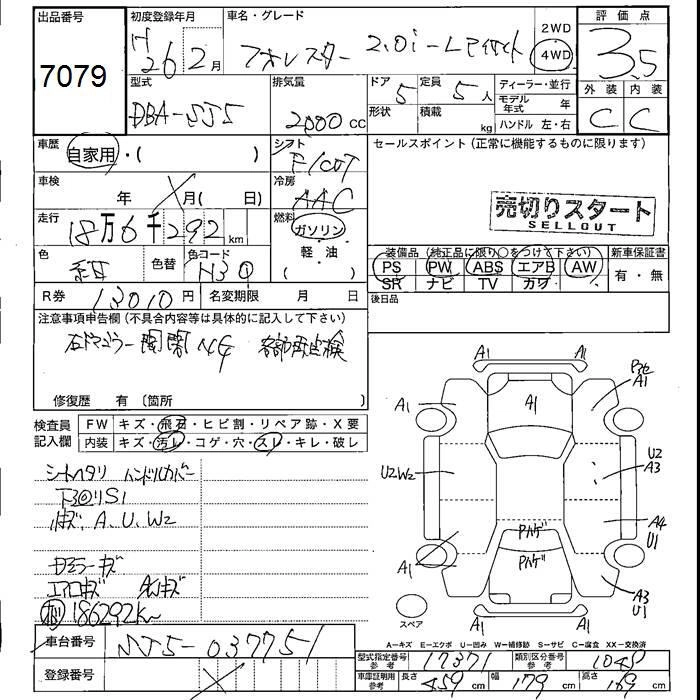 出品番号
7079
初度登録年月
H26 2月
車名・グレード
フォレスター 2.0i-Lアイサイト
2WD
4WD
評価点
3.5
外装 内装
C C
型式
DBA-SJ5
排気量
2000cc
ドア
5
形状
定員
5人
積載
kg
ディーラー・並行
モデル年式 年
ハンドル 左・右
車歴
自家用・( )
シフト
F/CVT
セールスポイント (正常に機能するものに限ります)
車検
年 月( 日)
冷房
AAC
売切りスタート
SELLOUT
走行
18万6千292km
燃料
ガソリン
軽・油
( )
色
紺
色替
色コード
H3Q
装備品 (純正品に限り○をつけて下さい)
PS PW ABS エアB AW
SR ナビ TV カワ
新車保証書
有・無
R券
13010円
名変期限 月 日
後日品
注意事項申告欄 (不具合内容等は具体的に記入して下さい)
右ドアミラー開閉NG
修復歴 有 (箇所 )
検査員記入欄
FW キズ・飛石・ヒビ割・リペア跡・X要
内装 キズ・汚レ・コゲ・穴・スレ・キレ・破レ
シートヘタリ ハンドルカバー
キズ、A、U、W2
ドアミラーキズ
エアロキズ AWキズ
186292km
A1 A1
A1
A1
A1
U2W2
U2
A3
A4
U1
Pハゲ
Pハゲ
A1
A3
U1
スペア
A=キズ E=エクボ U=凹み W=補修跡 S=サビ C=腐食 XX=交換済
車台番号
SJ5-037751
登録番号
型式指定番号 参考
17371
類別区分番号 参考
車庫証明用 参考
長さ 459cm
幅 179cm
高さ 169cm